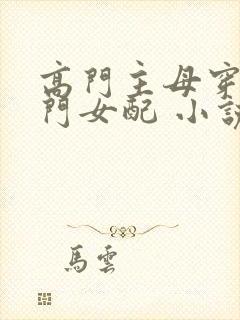 高門主母穿
門女配 小說
馬雲